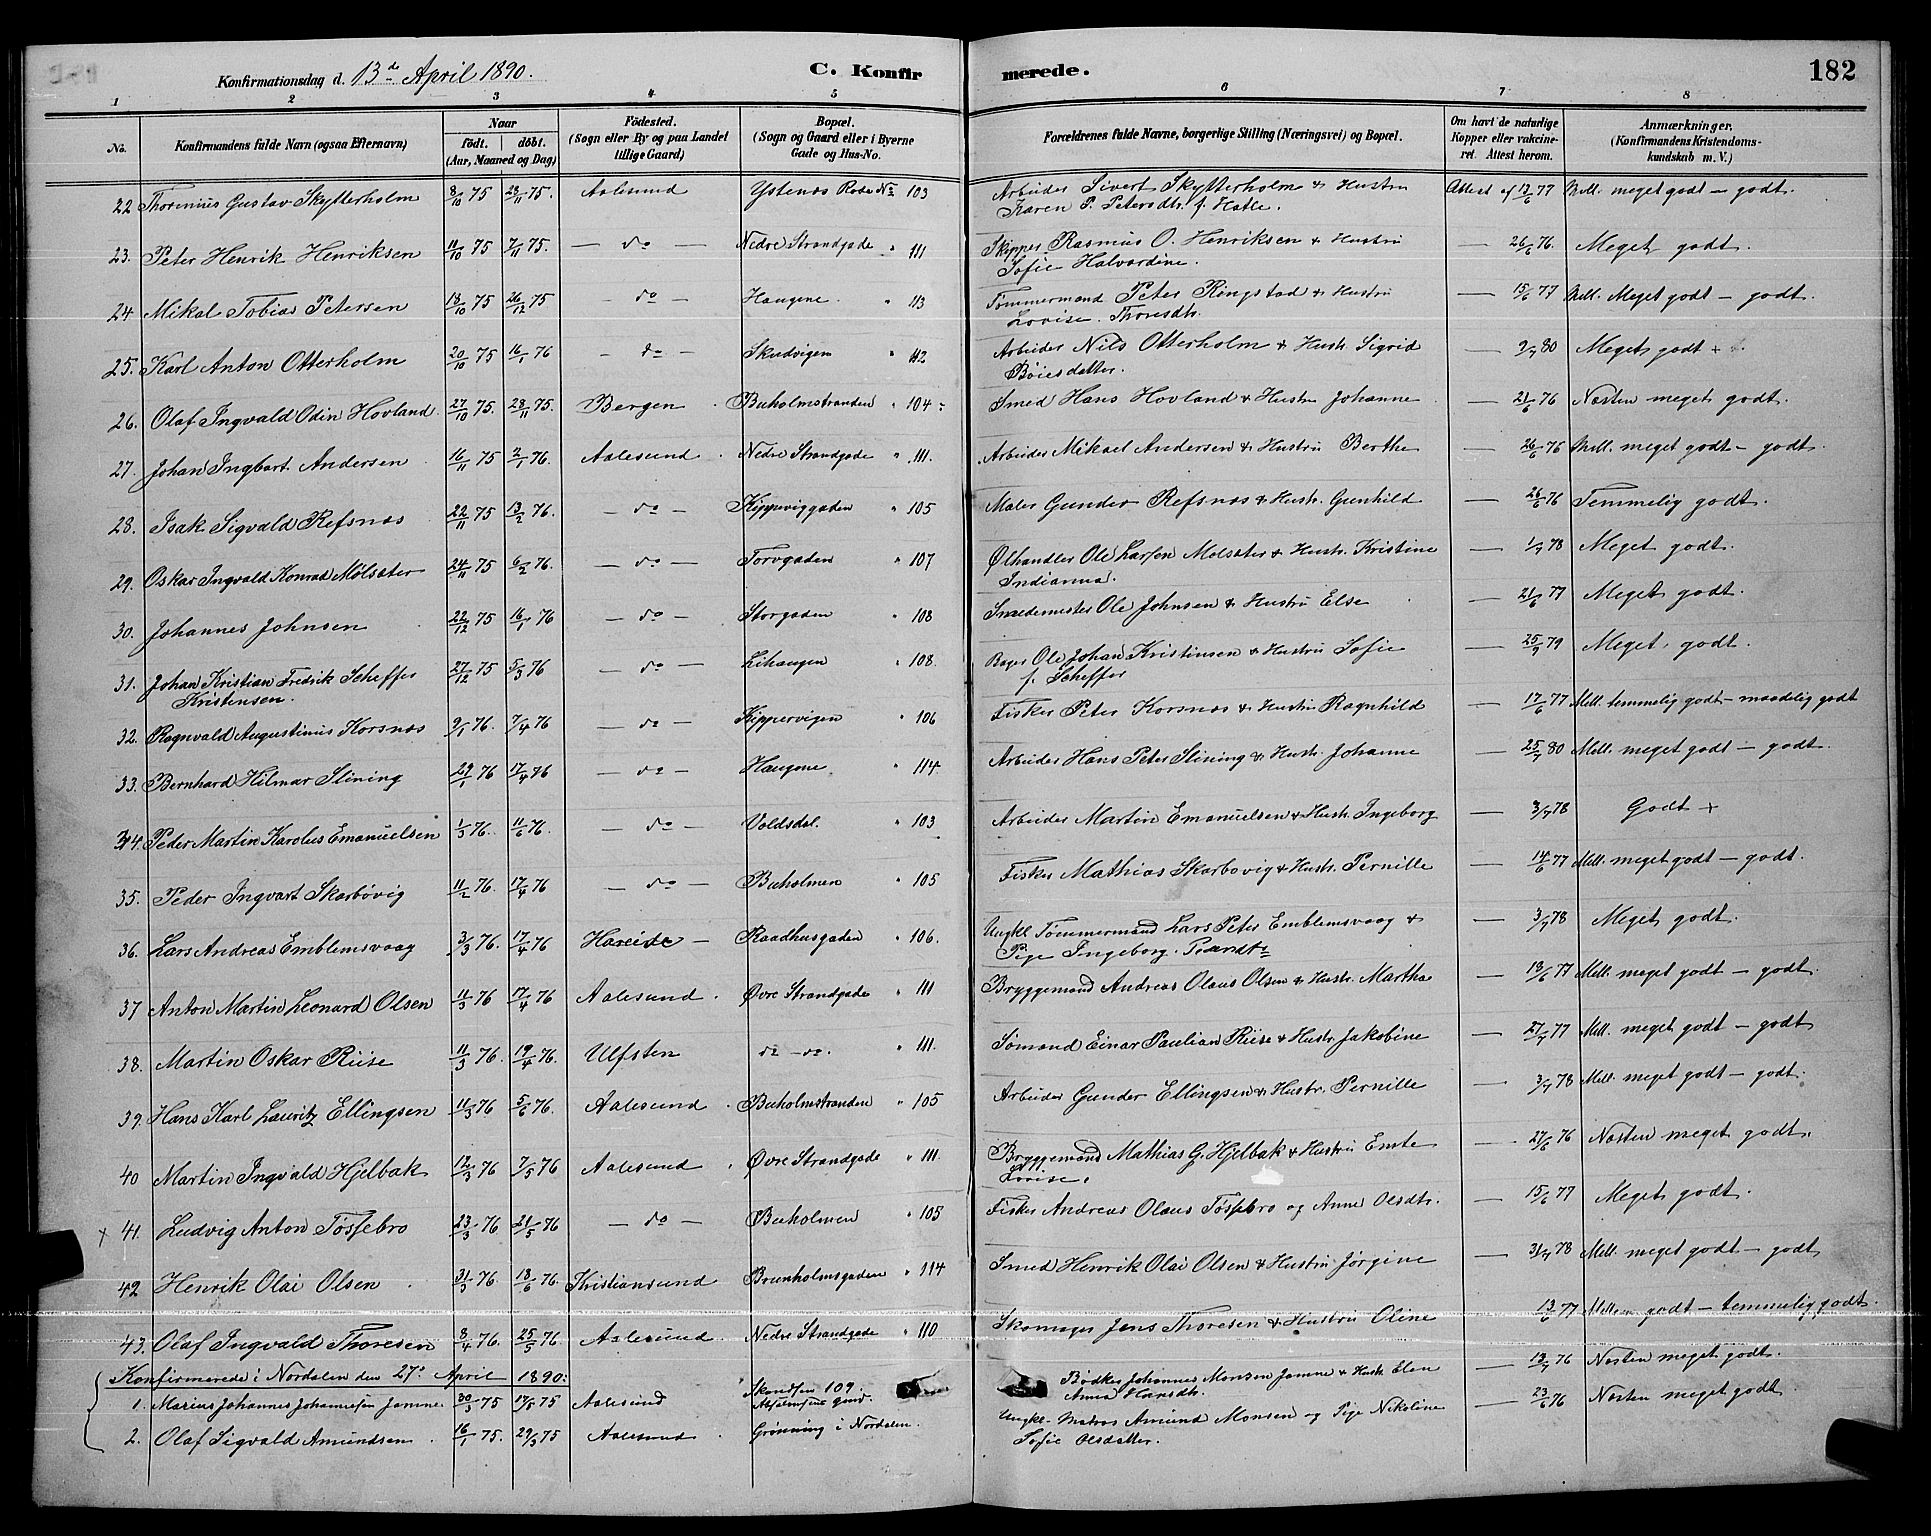 Konfirmationsdag d. 13de April 1890. C. Konfirmerede. 182
1 2 3 4 5 6 7 8
No. Konfirmandens fulde Navn (ogsaa Efternavn) Naar født. døbt. (Aar, Maaned og Dag) Fødested. (Sogn eller By og paa Landet tillige Gaard) Bopæl. (Sogn og Gaard eller i Byerne Gade og Hus-No.) Forældrenes fulde Navne, borgerlige Stilling (Næringsvei) og Bopæl. Om havt de naturlige Kopper eller vakcineret. Attest herom. Anmærkninger. (Konfirmandens Kristendomskundskab m. V.)
22 Thorenius Gustav Skytterholm 8/10 75 28/11 75. Aalesund Ystenæs Rode No 103 Arbeider Sivert Skytterholm & Hustru Karen P. Petersdtr. f. Hatle. Attest af 12/6 77 Mell. meget godt – godt.
23. Peter Henrik Henriksen 11/10 75 7/11 75. – do – Nedre Strandgade " 111 Skipper Rasmus O. Henriksen & Hustru Sofie Halvardine. – 26/6 76. Meget godt.
24 Mikal Tobias Petersen 18/10 75 26/12 75 – do – Haugene " 113 Tømmermand Peter Ringstad & Hustru Lovise Thoresdtr. – 15/6 77 Mell. Meget godt – godt.
25. Karl Anton Otterholm 20/10 75 16/1 76 – do – Skudvigen " 112 Arbeider Nils Otterholm & Hustr. Sigrid Bøiesdatter. – 9/7 80 Meget godt +
26. Olaf Ingvald Odin Hovland 27/10 75. 28/11 75. Bergen Buholmstranden " 104 Smed Hans Hovland & Hustru Johanne – 21/6 76 Næsten meget godt.
27. Johan Ingbart Andersen 16/11 75 2/1 76. Aalesund Nedre Strandgade " 111. Arbeider Mikael Andersen & Hustru Berthe – 26/6 76 Mell. meget godt – godt.
28. Isak Sigvald Refsnæs 22/11 75 13/2 76. – do – Kipperviggaden " 105 Maler Gunder Refsnæs & Hustr. Gunhild – 26/6 76 Temmelig godt.
29. Oskar Ingvald Konrad Mølsæter 24/11 75 6/2 76. – do – Torvgaden " 107 Ølhandler Ole Larsen Mølsæter & Hustr. Kristine Indianna. – 1/7 78 Meget godt.
30. Johannes Johnsen 22/12 75 16/1 76 – do – Storgaden " 108 Smedemester Ole Johnsen & Hustru Else – 21/6 77 Meget godt.
31. Johan Kristian Fredrik Scheffer Kristensen. 27/12 75 5/3 76 – do – Lihaugen " 108. Bager Ole Johan Kristinsen & Hustru Sofie f. Scheffer – 25/9 79 Meget godt.
32. Ragnvald Augustinus Korsnæs 9/1 76. 7/4 76 – do – Kippervigen " 106 Fisker Peter Korsnæs & Hustru Ragnhild – 17/6 77 Mell. temmelig godt – maadelig godt
33. Bernhard Hilmar Slining 29/1 76 17/4 76 – do – Haugene " 114. Arbeider Hans Peter Slining & Hustr. Johanne – 25/7 80 Mell. meget godt – godt.
34. Peder Martin Karolus Emanuelsen 1/3 76. 11/6 76. – do – Voldsdal. " 103 Arbeider Martin Emanuelsen & Hustr. Ingeborg – 3/7 78 Godt +
35. Peder Ingvart Skarbøvig 11/2 76. 17/4 76 – do – Buholmen " 105 Fisker Mathias Skarbøvig & Hustr. Pernille – 14/6 77 Mell. meget godt – godt.
36. Lars Andreas Emblemsvaag 3/3 76. 17/4 76 Hareide – Raadhusgaden " 106. Ungkl Tømmermand Lars Peter Emblemsvaag & Pige Ingeborg – 3/7 78 Meget godt.
37 Anton Martin Leonard Olsen 11/3 76 17/4 76 Aalesund. Øvre Strandgade " 111 Bryggemand Andreas Olaus Olsen & Hustr. Martha – 18/6 77 Mell. meget godt – godt.
38. Martin Oskar Riise 11/3 76. 19/4 76. Ulfsten do – do. " 111. Sømand Einar Paulian Riise & Hustr. Jakobine – 27/7 77 Mell. meget godt – godt
39. Hans Karl Lauritz Ellingsen 11/3 76 5/6 76. Aalesund. Buholmstranden " 105 Arbeider Gunder Ellingsen & Hustr. Pernille – 3/7 78 Mell. meget godt – godt.
40 Martin Ingvald Hjelbak 12/3 76 7/5 76 Aalesund Øvre Strandgade " 111. Bryggemand Mathias G. Hjelbak & Hustru Emte Lovise. – 27/6 76 Næsten meget godt.
+ 41. Ludvig Anton Tøsfebro 23/3 76 21/5 76 – do – Buholmen " 105 Fisker Andreas Olaus Tøsfebro og Anne Olsdtr. – 15/6 77 Meget godt.
42 Henrik Olai Olsen 31/3 76. 18/6 76. Kristiansund Brunholmsgaden " 114 Smed Henrik Olai Olsen & Hustru Jørgine – 31/7 78 Mell. meget godt – godt
43. Olaf Ingvald Thoresen 8/4 76. 25/5 76. Aalesund. Nedre Strandgade " 110 Skomager Jens Thoresen & Hustru Oline 13/6 77 Mell. godt – temmelig godt.
Konfirmerede i Nordalen den 27de April 1890:
1. Marius Johannes Johannesen Jamne. 30/3 75 17/5 75 Aalesund 109 Bødker Johannes Monsen Jamne & Hustr. Elen Anna Hansdtr. – 18/7 76 Næsten meget godt.
2. Olaf Sigvald Amundsen 16/1 75. 29/3 75 Aalesund. Grønning i Nordalen. Ungkl. Matros Amund Monsen og Pige Nikoline Sofie Olsdatter. – 23/6 76 Næsten meget godt.